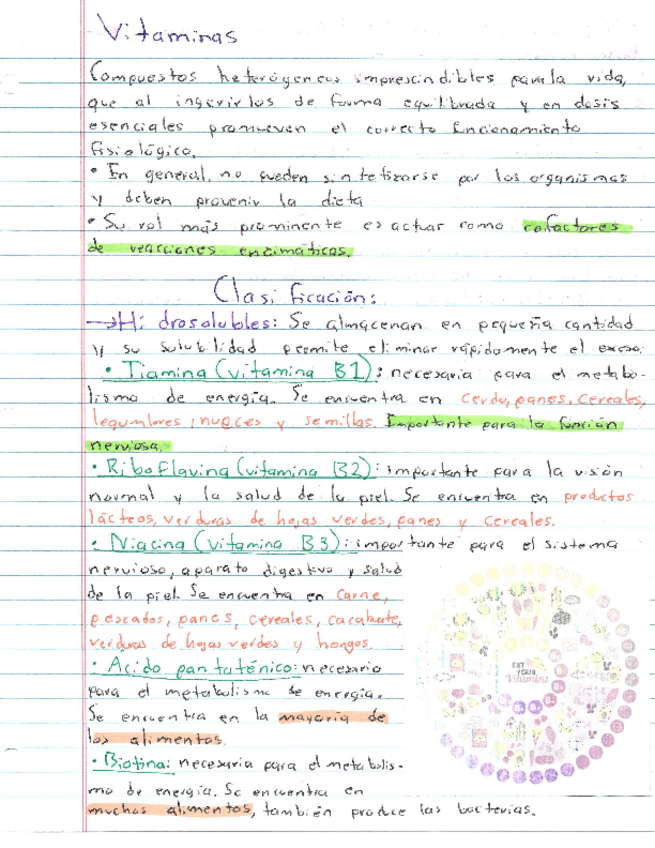 Vitaminas
Compuestos heterógeneos imprescindibles para la vida,
que al ingerirlos de forma equilibrada y en dosis
esenciales promueven el correcto funcionamiento
fisiológico.
• En general, no pueden sintetizarse por los organismos
y deben provenir la dieta
• Su rol más prominente es actuar como cofactores
de reacciones enzimáticas.
Clasificación:
→Hidrosolubles: Se almacenan en pequeña cantidad
y su solubilidad permite eliminar rápidamente el exceso.
• Tiamina (vitamina B1): necesaria para el metabo-
lismo de energía. Se encuentra en cerdo, panes, cereales,
legumbres, nueces y semillas. Importante para la función
nerviosa.
• Riboflavina (vitamina B2): importante para la visión
normal y la salud de la piel. Se encuentra en productos
lácteos, verduras de hojas verdes, panes y cereales.
• Niacina (vitamina B3): importante para el sistema
nervioso, aparato digestivo y salud
de la piel. Se encuentra en carne,
pescados, panes, cereales, cacahuate,
verduras de hojas verdes y hongos.
• Acido pantoténico: necesario
para el metabolismo de energía.
Se encuentra en la mayoría de
los alimentos.
• Biotina: necesaria para el metabolis-
mo de energía. Se encuentra en
muchos alimentos, también produce las bacterias.
EAT
YOUR
Vitamins